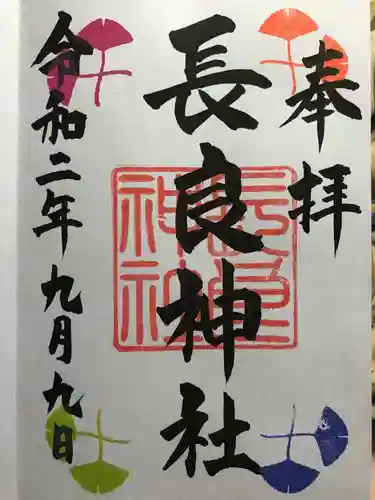 奉拝
長良神社
長良神社
令和二年九月九日